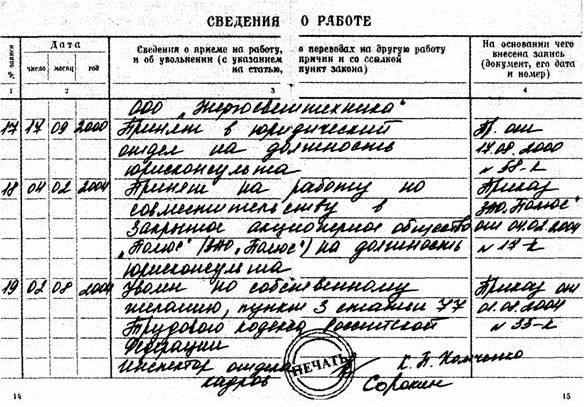 СВЕДЕНИЯ О РАБОТЕ
№ записи
Дата
число месяц год
Сведения о приеме на работу, о переводах на другую работу
и об увольнении (с указанием причин и со ссылкой
на статью, пункт закона)
На основании чего
внесена запись
(документ, его дата
и номер)
1 2 3 4
ООО „Энергосветтехника“
17 17 09 2000 Принят в юридический Пр. от
отдел на должность 17.08.2000
юрисконсульта № 58-к
18 04 02 2004 Принят на работу по Приказ
совместительству в ЗАО „Полюс“
Закрытое акционерное общество от 04.02.2004
„Полюс“ (ЗАО „Полюс“) на должность № 17-к
юрисконсульта
19 02 08 2004 Уволен по собственному Приказ от
желанию, пункт 3 статьи 77 01.08.2004
Трудового кодекса Российской № 33-к
Федерации
Инспектор отдела
кадров
ПЕЧАТЬ
Сорокин
14 15